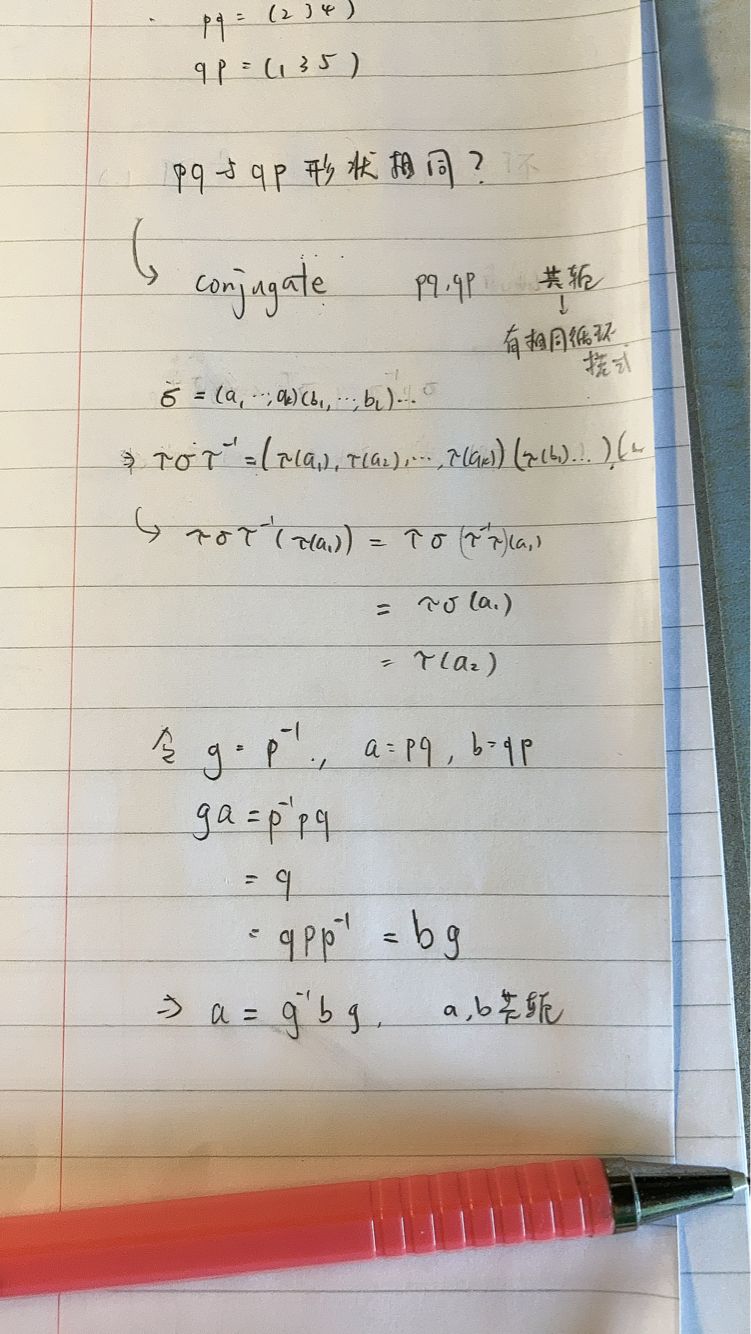 pq = (2 3 4)
qp = (1 3 5)
pq与qp 形状相同?
conjugate pq,qp 共轭
↓
有相同循环
模式
σ = (a₁,…,aₖ)(b₁,…,bₗ)…
⇒ τστ⁻¹ = (τ(a₁), τ(a₂),…, τ(aₖ)) (τ(b₁)…)(
τστ⁻¹(τ(a₁)) = τσ(τ⁻¹τ)(a₁)
= τσ(a₁)
= τ(a₂)
令 g = p⁻¹, a = pq, b = qp
ga = p⁻¹pq
= q
= qpp⁻¹ = bg
⇒ a = g⁻¹bg, a,b共轭